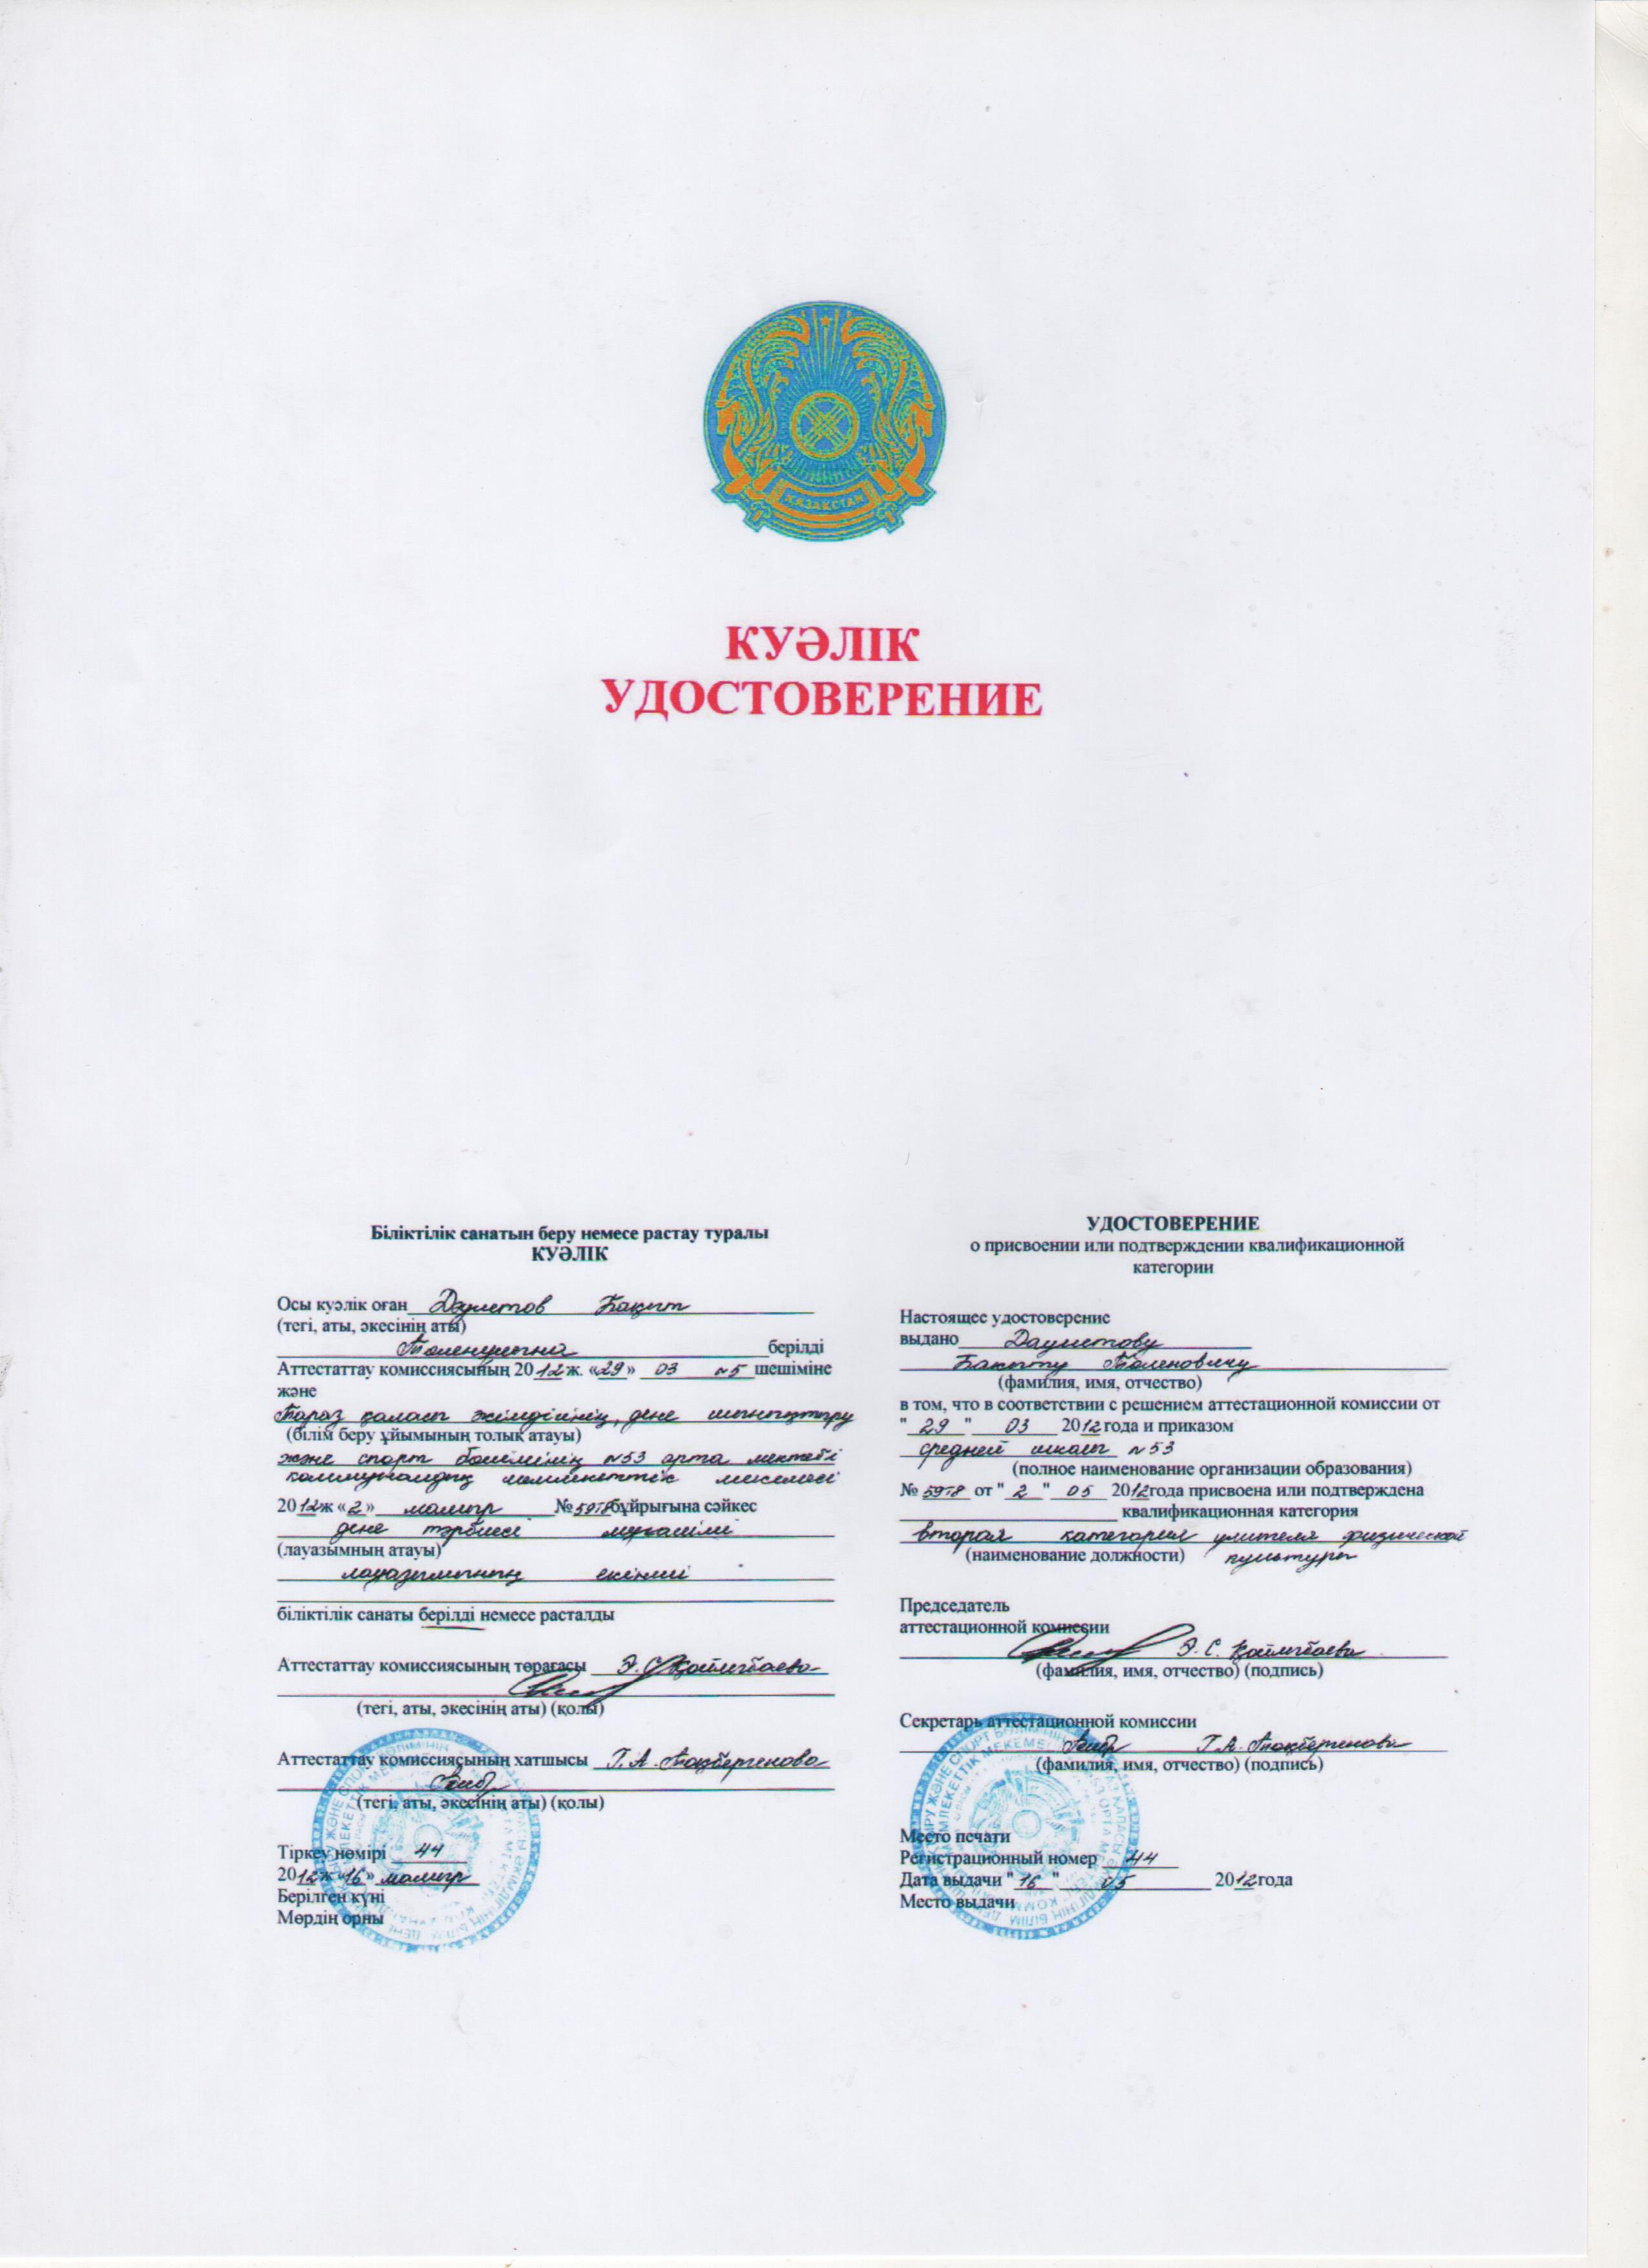 ҚАЗАҚСТАН
КУӘЛІК
УДОСТОВЕРЕНИЕ
Біліктілік санатын беру немесе растау туралы
КУӘЛІК
Осы куәлік оған Дәулетов Бақыт
(тегі, аты, әкесінің аты)
Төленұлына берілді
Аттестаттау комиссиясының 2012 ж. «29» 03 №5 шешіміне
және
Тараз қаласы әкімдігінің, дене шынықтыру
(білім беру ұйымының толық атауы)
және спорт бөлімінің №53 орта мектебі
коммуналдық мемлекеттік мекемесі
2012ж «2» мамыр № 59т8 бұйрығына сәйкес
дене тәрбиесі мұғалімі
(лауазымның атауы)
лауазымының екінші
біліктілік санаты берілді немесе расталды
Аттестаттау комиссиясының төрағасы Э.С.Қойлыбаева
(тегі, аты, әкесінің аты) (қолы)
Аттестаттау комиссиясының хатшысы Г.А.Тоқбергенова
(тегі, аты, әкесінің аты) (қолы)
Тіркеу нөмірі 44
2012ж «16» мамыр
Берілген күні
Мөрдің орны
УДОСТОВЕРЕНИЕ
о присвоении или подтверждении квалификационной
категории
Настоящее удостоверение
выдано Даулетову
Бакыту Толеновичу
(фамилия, имя, отчество)
в том, что в соответствии с решением аттестационной комиссии от
" 29 " 03 2012 года и приказом
средней школы №53
(полное наименование организации образования)
№ 59т8 от " 2 " 05 2012года присвоена или подтверждена
квалификационная категория
вторая категория учителя физической
(наименование должности) культуры
Председатель
аттестационной комиссии
Э.С. Қойлыбаева
(фамилия, имя, отчество) (подпись)
Секретарь аттестационной комиссии
Г.А.Тоқбергенова
(фамилия, имя, отчество) (подпись)
Место печати
Регистрационный номер 44
Дата выдачи " 16 " 05 2012года
Место выдачи